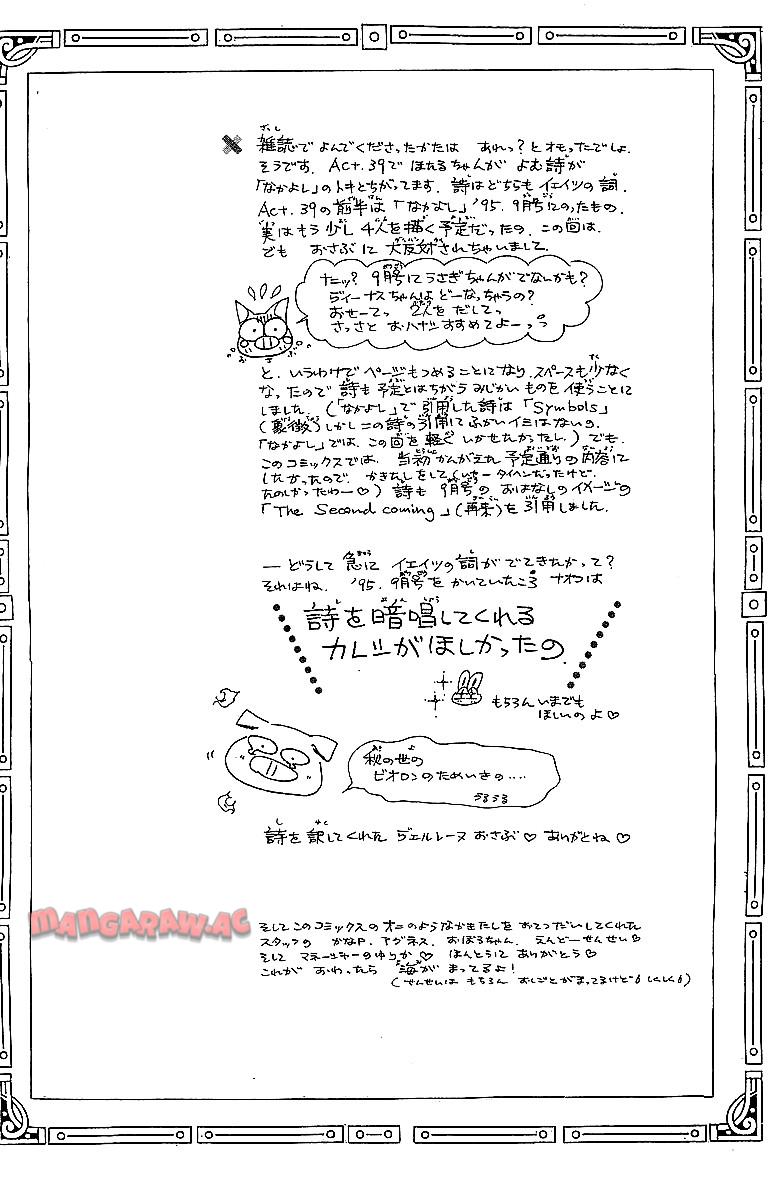 ざっし
雑誌で よんでくださったかたは あれっ？とオモったでしょ．
そうです．Act.39で ほたるちゃんが よむ詩が
「なかよし」のトキとちがってます．詩はどちらも イェイツの 詞．
Act.39の前半は「なかよし」'95.9月号にのったもの．
実はもう少し 4人を描く予定だったの．この回は．
でも おさぶに 大反対されちゃいまして．
ナニッ？ 9月号にうさぎちゃんがでないかも？
ヴィーナスちゃんは どーなっちゃうの？
おせーてっ 2人を だしてっ
さっさと おハナシすすめてよーっっ
おさぶ
と．いうわけで ページもつめることになり，スペースも少なく
なったので 詩も 予定とはちがう みじかい ものを 使うことに
しました．（「なかよし」で 引用した詩は「Symbols」
（象徴）しかしこの詩の引用にふかいイミはないの．
「なかよし」では、この回を軽く いかせたかったし．）でも．
このコミックスでは、当初 かんがえた 予定通りの内容に
したかったので．かきたしをして（いやータイヘンだったけど．
たのしかったわー♡）詩も 9月号の おはなしのイメージの
「The Second coming」（再来）を引用しました．
― どうして 急に イェイツの詞が でてきたかって？
それはね．'95.9月号を かいていたころ ナオコは
詩を暗唱してくれる
カレシがほしかったの．
もちろん いまでも
ほしいの よ♡
秋の世の
ビオロンの ためいきの‥‥
うるうる
詩を 訳してくれた ヴェルレーヌ おさぶ♡ ありがとね♡
MANGARAW.AC
そして このコミックスの オニのようなかきたしを おてつだいしてくれた
スタッフの かなP．アグネス．おぼろちゃん．えんどーせんせい♡
そして マネージャーのゆりか♡ ほんとうに ありがとう♡
これが おわったら 海が まってるよ！
（せんせいは もちろん おしごとが まってるけど しくしく）